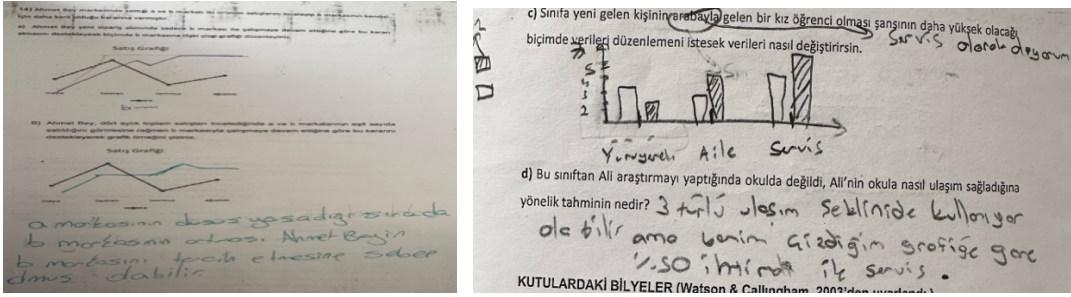 14) Ahmet Bey marketinde sattığı a ve b markalı
için daha karlı olduğu kararına varmıştır.
a) Ahmet Bey yeni sipariş alımında sadece b markası ile çalışmaya devam ettiğine göre bu kararı
almasını destekleyecek biçimde b markasına ilişkin çizgi grafiği düzenleyiniz.
Satış Grafiği
b
B) Ahmet Bey, dört aylık toplam satışları incelediğinde a ve b markalarının eşit sayıda
satıldığını görmesine rağmen b markasıyla çalışmaya devam ettiğine göre bu kararını
destekleyecek grafik örneğini çiziniz.
Satış Grafiği
a markasının düşüş yaşadığı sırada
b markasının artması Ahmet Beyin
b markasını tercih etmesine sebep
olmuş olabilir
c) Sınıfa yeni gelen kişinin arabayla gelen bir kız öğrenci olması şansının daha yüksek olacağı
biçimde verileri düzenlemeni istesek verileri nasıl değiştirirsin.
servis olarak diyorum
5
4
3
2
Yürüyerek Aile Servis
d) Bu sınıftan Ali araştırmayı yaptığında okulda değildi, Ali'nin okula nasıl ulaşım sağladığına
yönelik tahminin nedir? 3 türlü ulaşım şeklinide kullanıyor
ola bilir ama benim çizdiğim grafiğe göre
%50 ihtimal ile servis.
KUTULARDAKİ BİLYELER (Watson & Callingham, 2003'den uyarlandı.)